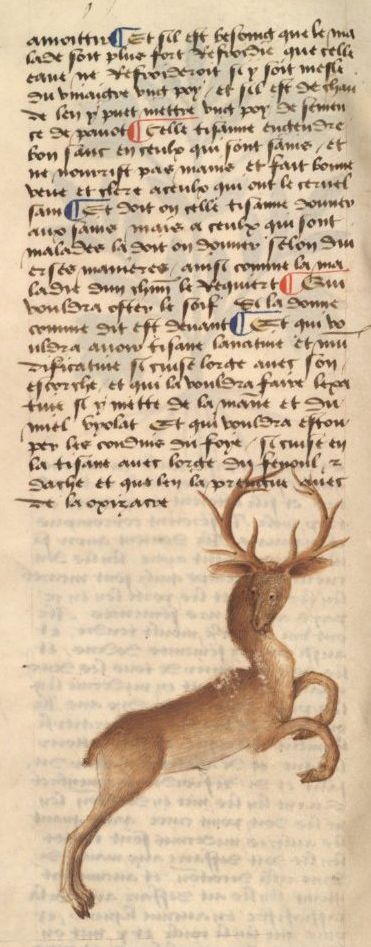 amoittir ¶ Et sil est besoing que le ma
lade soit plus fort Refroidie que celle
eaue ne Refroideroit si y soit mesle
du vinaigre ung poy / et sil est de chau
de len y puet mettre ung poy de semen
ce de pavot ¶ Celle tisanne engendre
bon sanc en ceulx qui sont sains / et
ne nourrist pas mains et fait bonne
veue et clere a ceulx qui ont le cervel
sain ¶ Et doit on celle tisanne donner
aux sains / mais a ceulx qui sont
malades la doit on donner selon div
erses manieres / ainsi comme la ma
ladie dun chun le Requiert ¶ Qui
vouldra oster le soif Si la donne
comme dit est devant ¶ Et qui vo
uldra avoir tisane lavative et mu
dificative si cuise lorge avec son
escorche / et qui la vouldra faire lexa
tive si y mette de la mane et du
miel violat Et qui vouldra estou
per les conduis du foye / si cuise en
la tisane avec lorge du fenoul / z
dache et que len la preingne avec
de la oxizacre